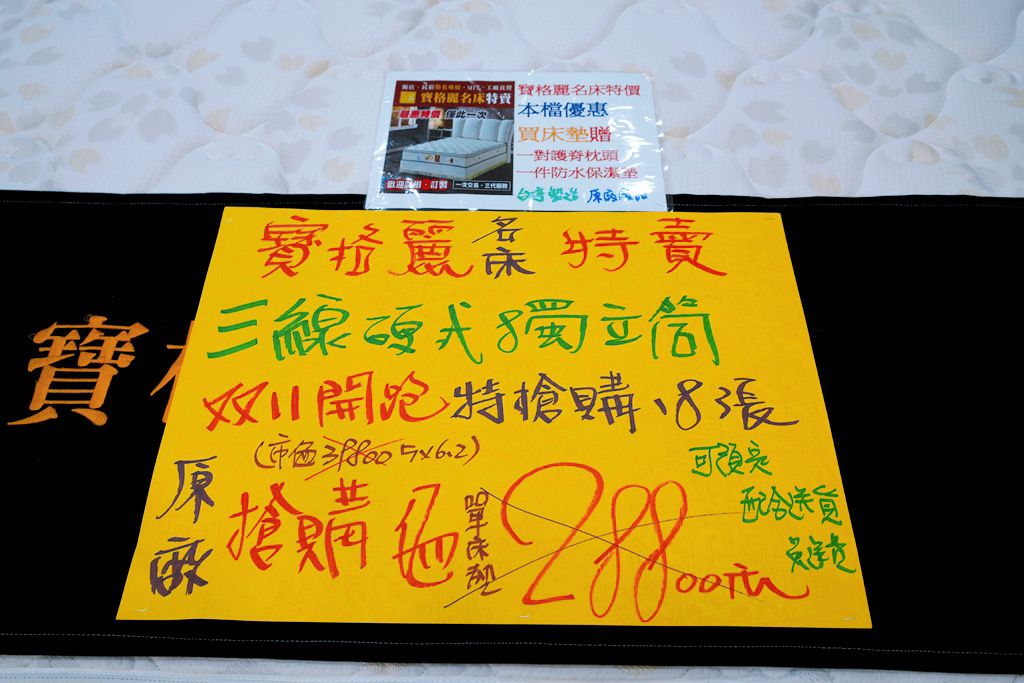 飯店．民宿指名專用．MIT．工廠直營
寶格麗名床特賣
嚴惠特價 僅此一次
歡迎試用．訂製
一次交易．三代服務
寶格麗名床特價
本檔優惠
買床墊贈
一對護脊枕頭
一件防水保潔墊
台灣製造 原廠
寶格麗名床特賣
三線硬式獨立筒
双11開跑 特搶購18張
(市価39800 5×6.2)
原廠
搶購価
單床墊
28800元
可預定
配合送貨
免運費
寶格